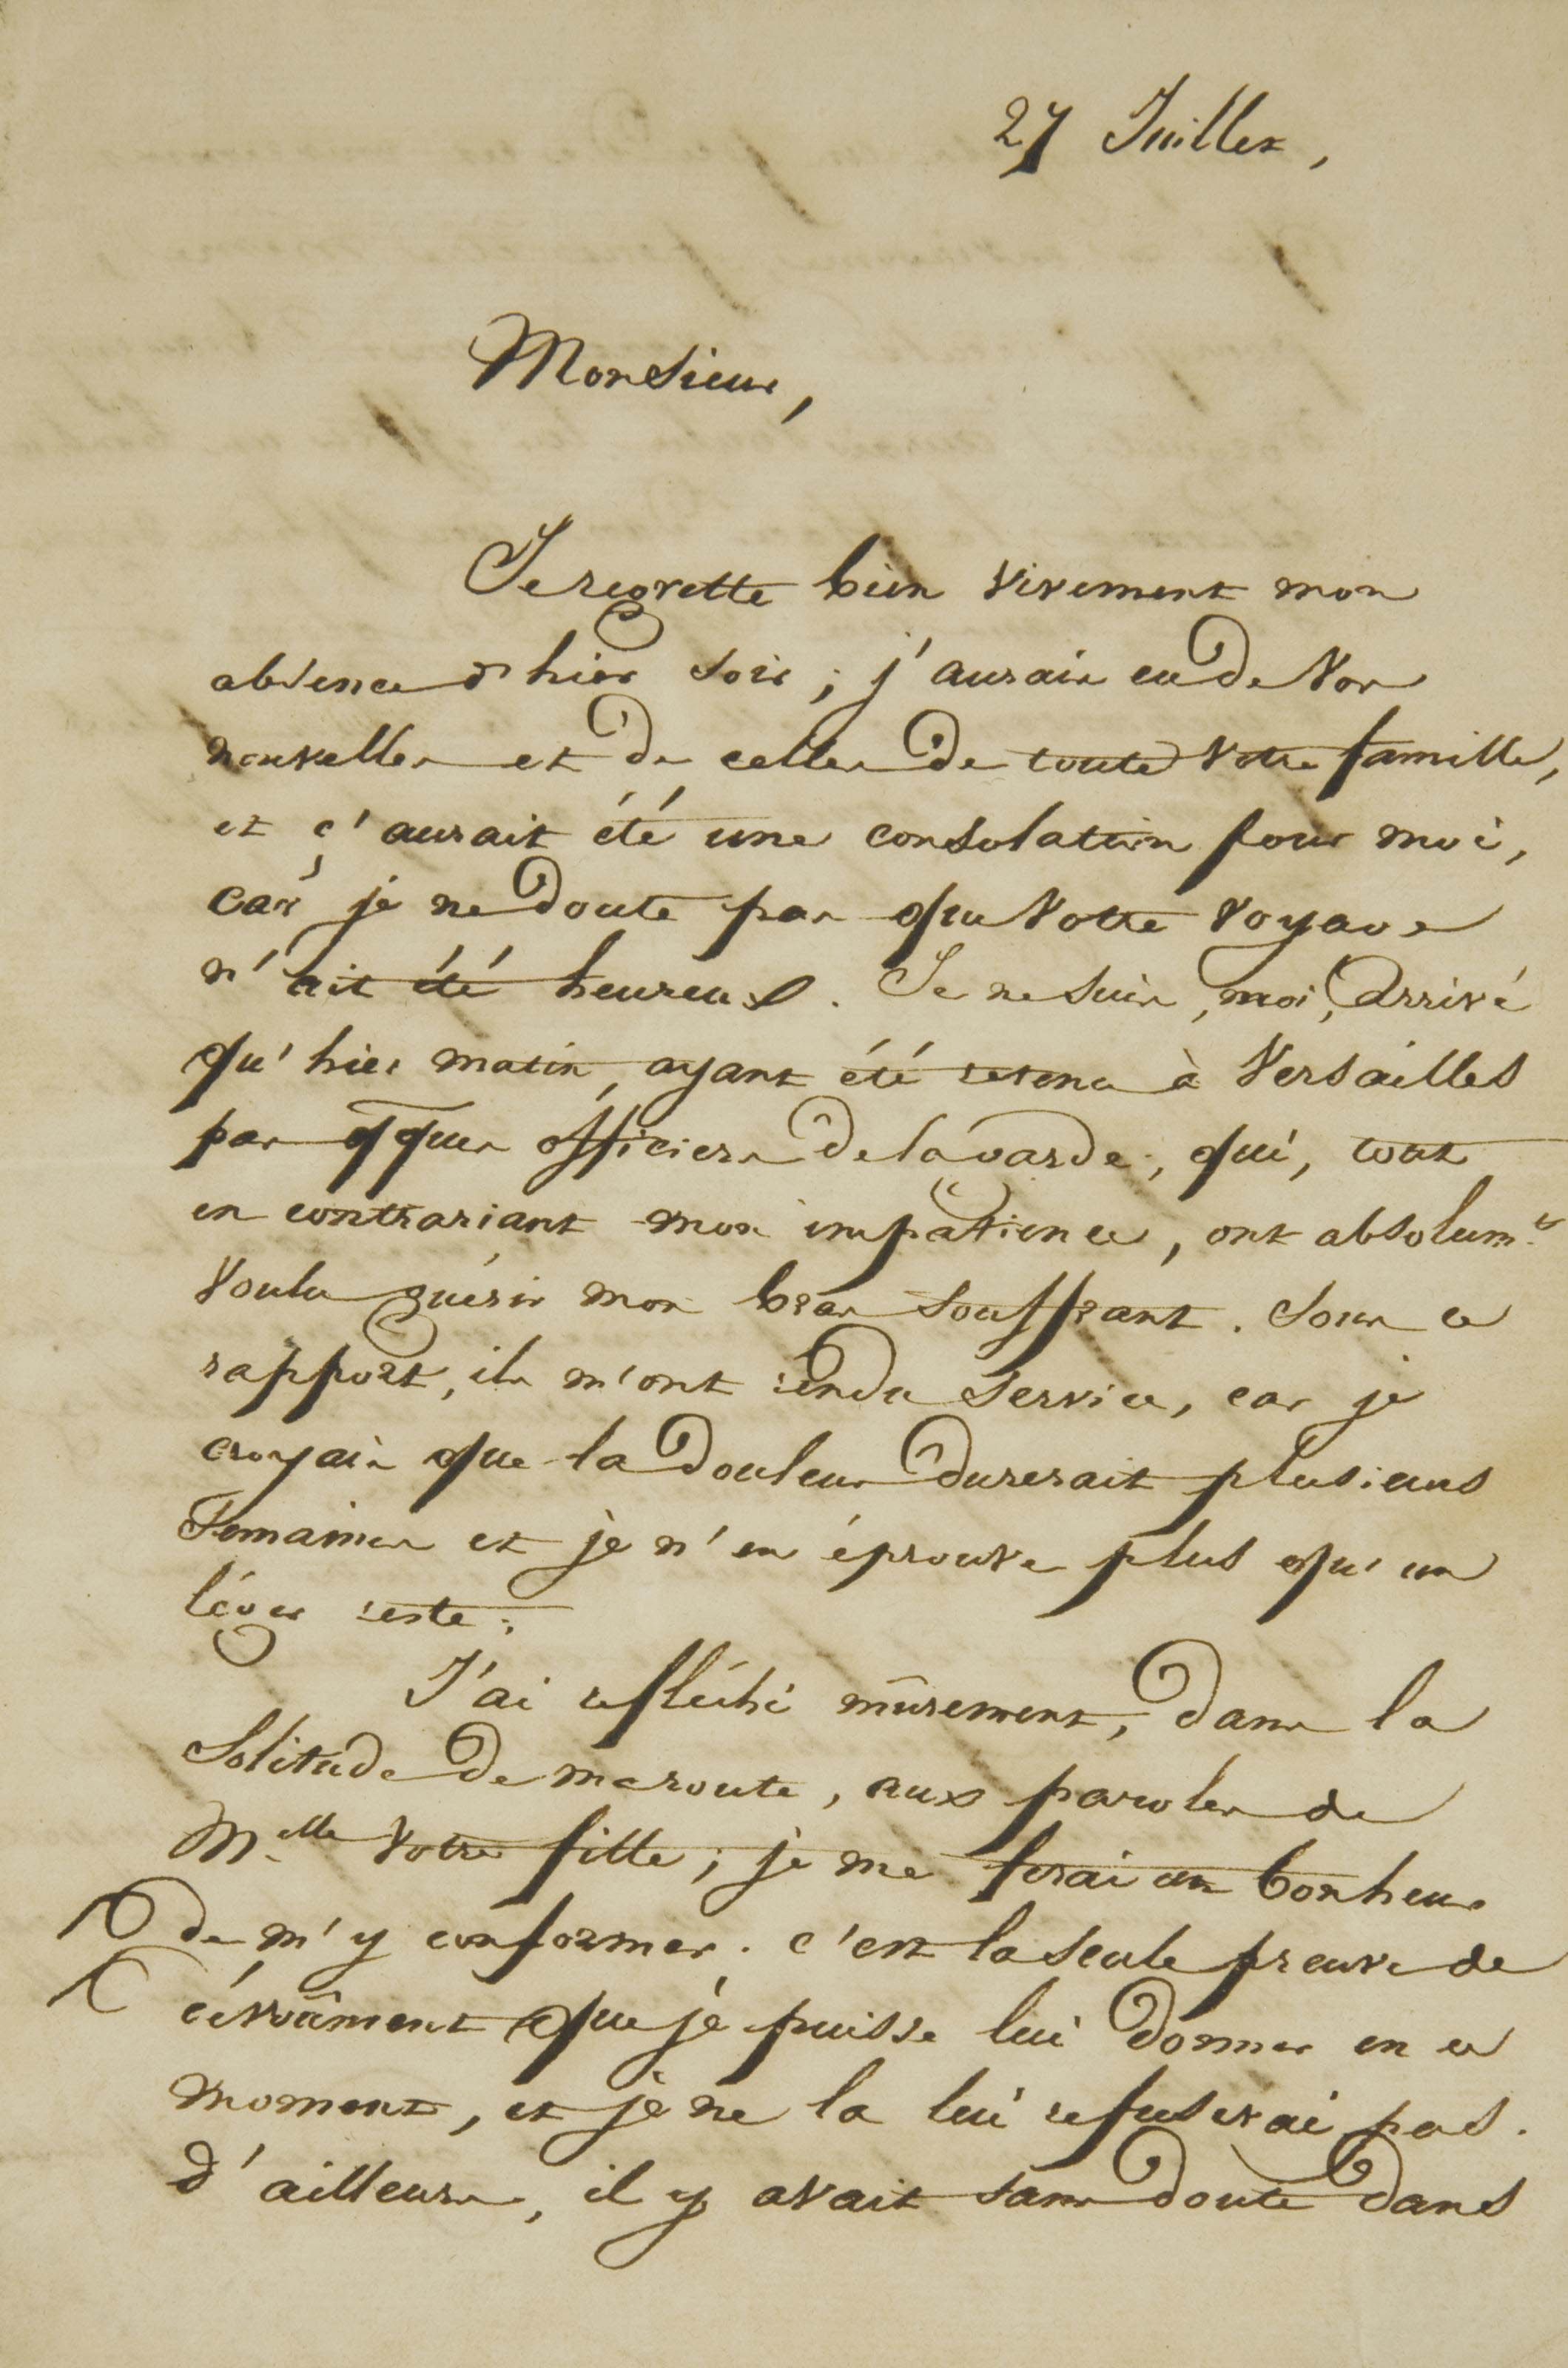 27 Juillet,
Monsieur,
Je regrette bien vivement mon
absence d'hier soir ; j'aurais eu de vos
nouvelles et de celles de toute votre famille,
et ç'aurait été une consolation pour moi,
car je ne doute pas que votre voyage
n'ait été heureux. Je ne suis, moi, arrivé
qu'hier matin, ayant été retenu à Versailles
par qques officiers de la garde, qui, tout
en contrariant mon impatience, ont absolumt
voulu guérir mon bras souffrant. Sous ce
rapport, ils m'ont rendu service, car je
croyais que la douleur durerait plusieurs
semaines et je n'en éprouve plus qu'un
léger reste.
J'ai réfléchi mûrement, dans la
solitude de ma route, aux paroles de
Melle votre fille ; je me ferai un bonheur
de m'y conformer. c'est la seule preuve de
dévoûment que je puisse lui donner en ce
moment, et je ne la lui refuserai pas.
d'ailleurs, il y avait sans doute dans